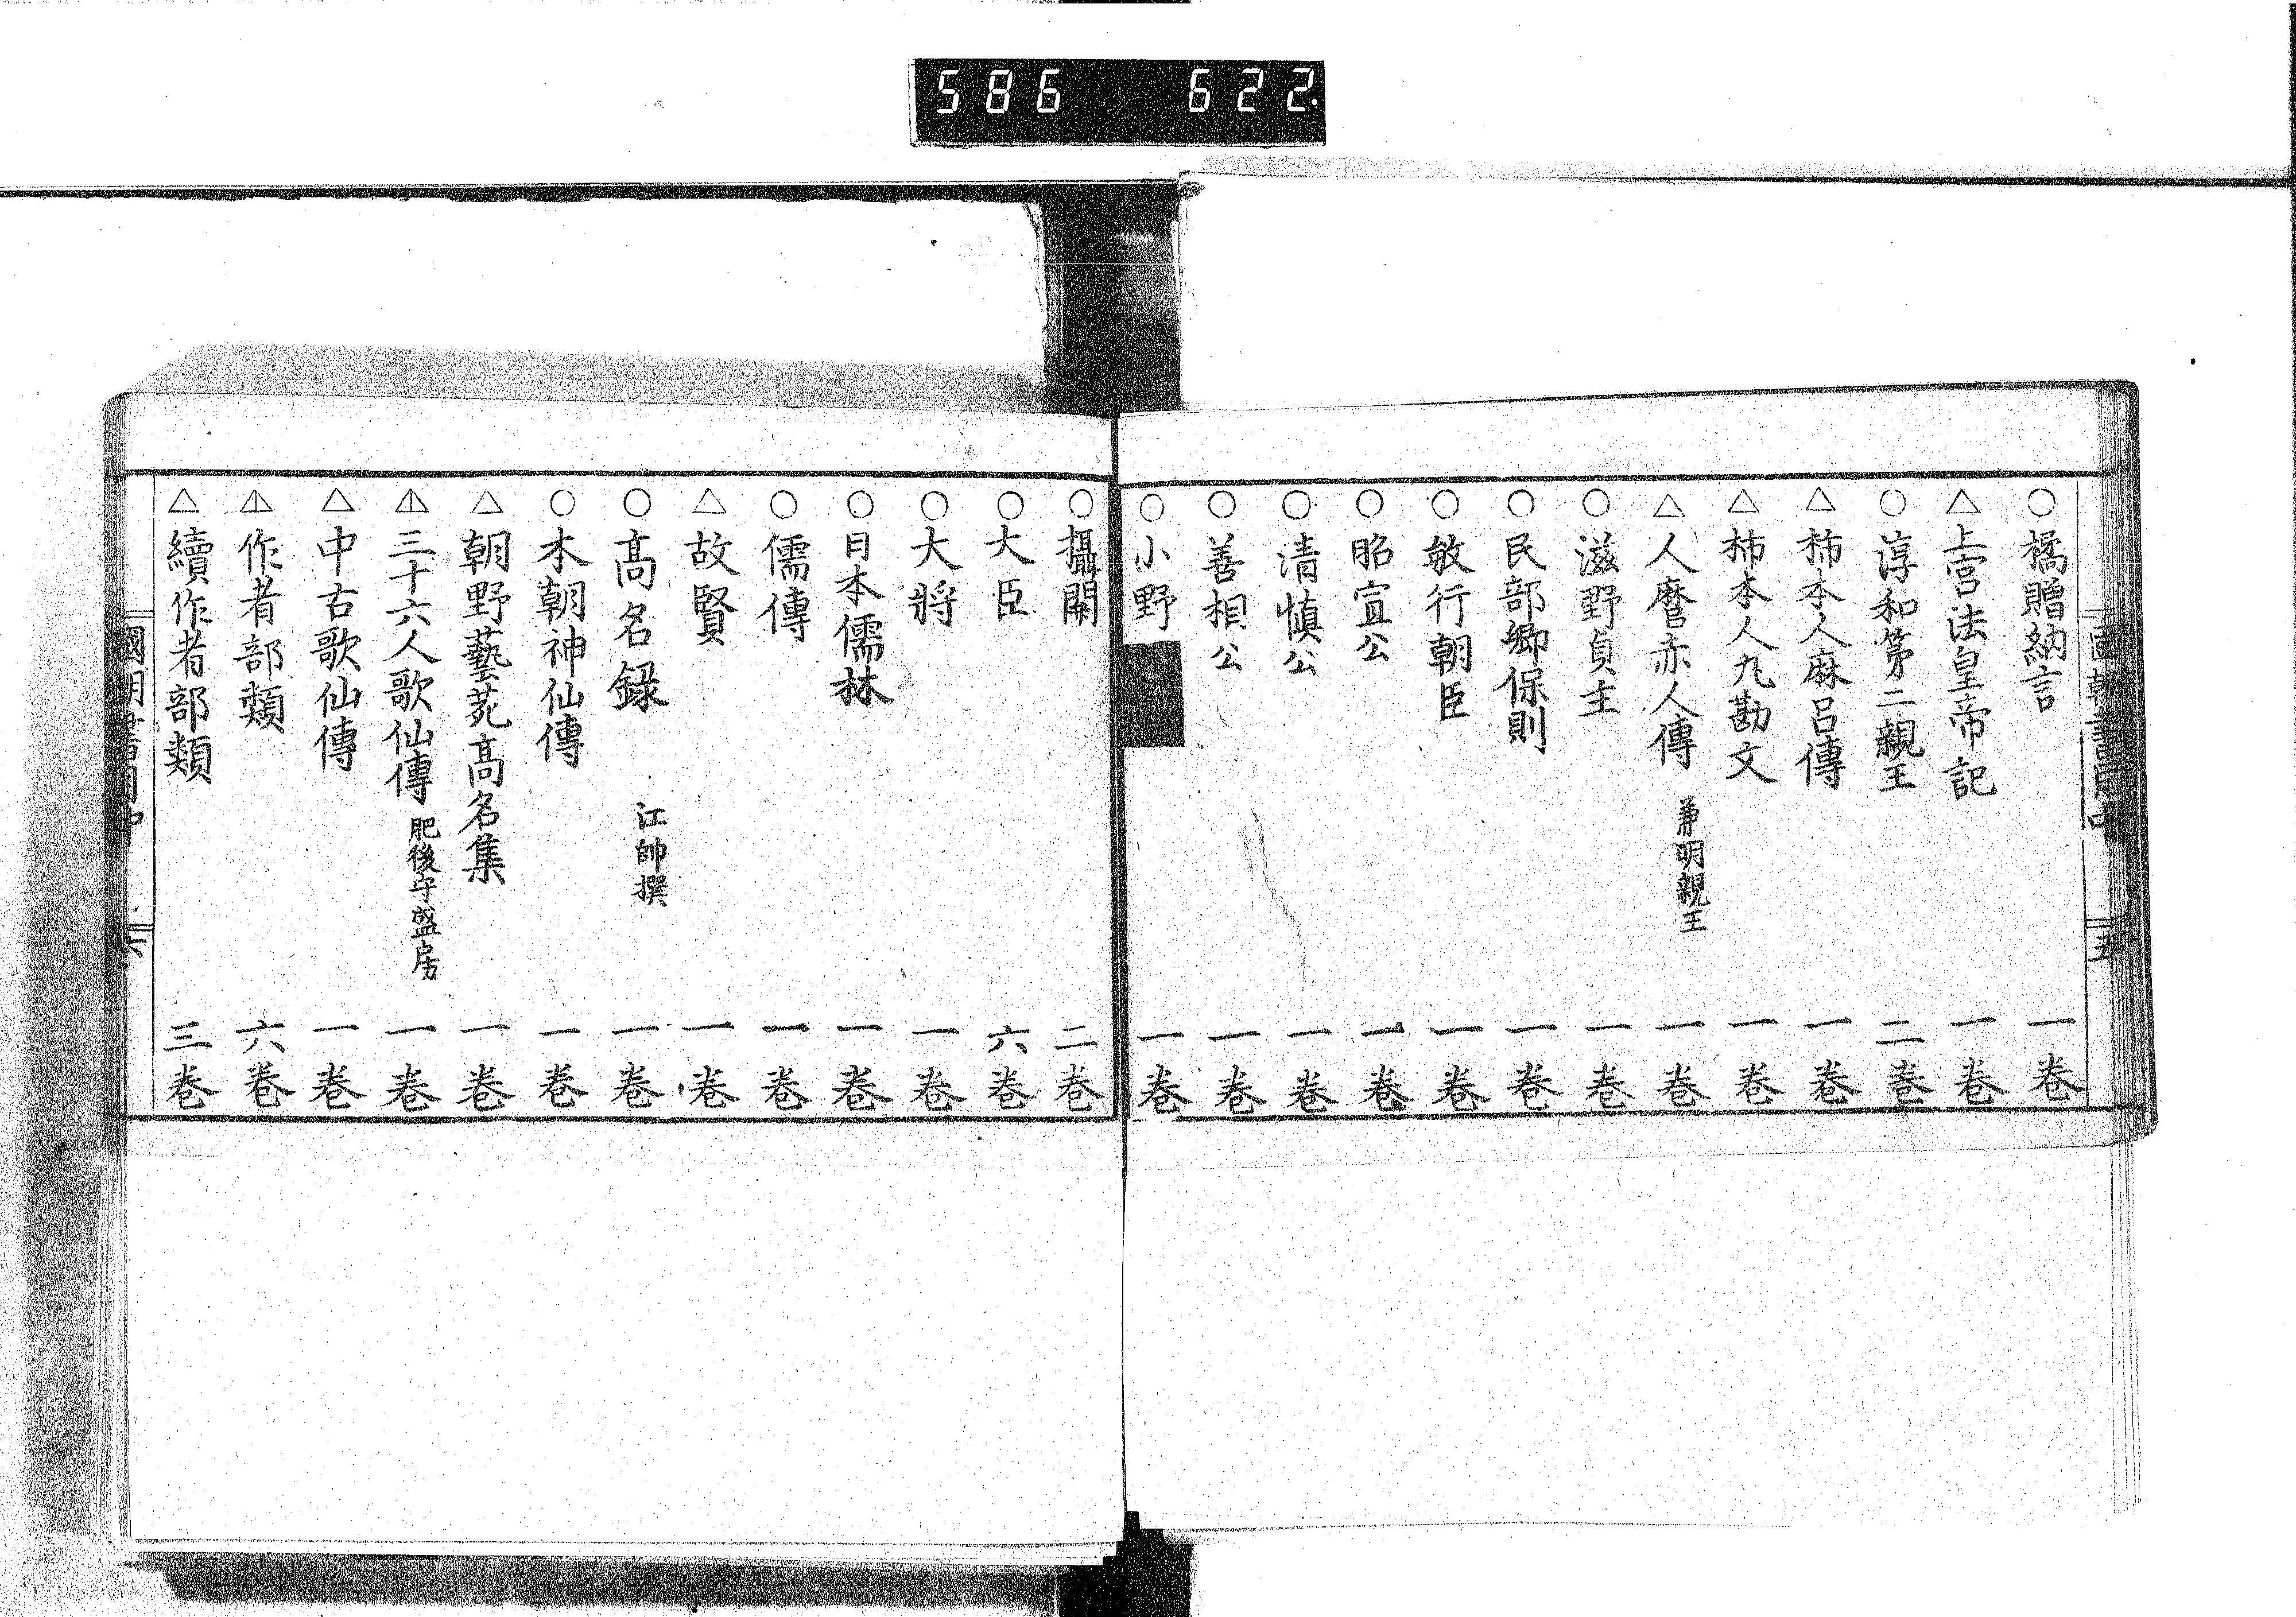 586 622
○橘贈納言 一卷
△上宮法皇帝記 一卷
○淳和第二親王 二卷
△柿本人麻呂傳 一卷
△柿本人丸勘文 一卷
△人麿赤人傳 兼明親王 一卷
○滋野貞主 一卷
○民部卿保則 一卷
○敏行朝臣 一卷
○昭宣公 一卷
○清慎公 一卷
○善相公 一卷
○小野 一卷
國朝書目中 五
○攝關 二卷
○大臣 六卷
○大將 一卷
○日本儒林 一卷
○儒傳 一卷
△故賢 一卷
○高名録 江帥撰 一卷
○本朝神仙傳 一卷
△朝野藝苑高名集 一卷
⍋三十六人歌仙傳 肥後守盛房 一卷
△中古歌仙傳 一卷
⍋作者部類 六卷
△續作者部類 三卷
國朝書目中 六